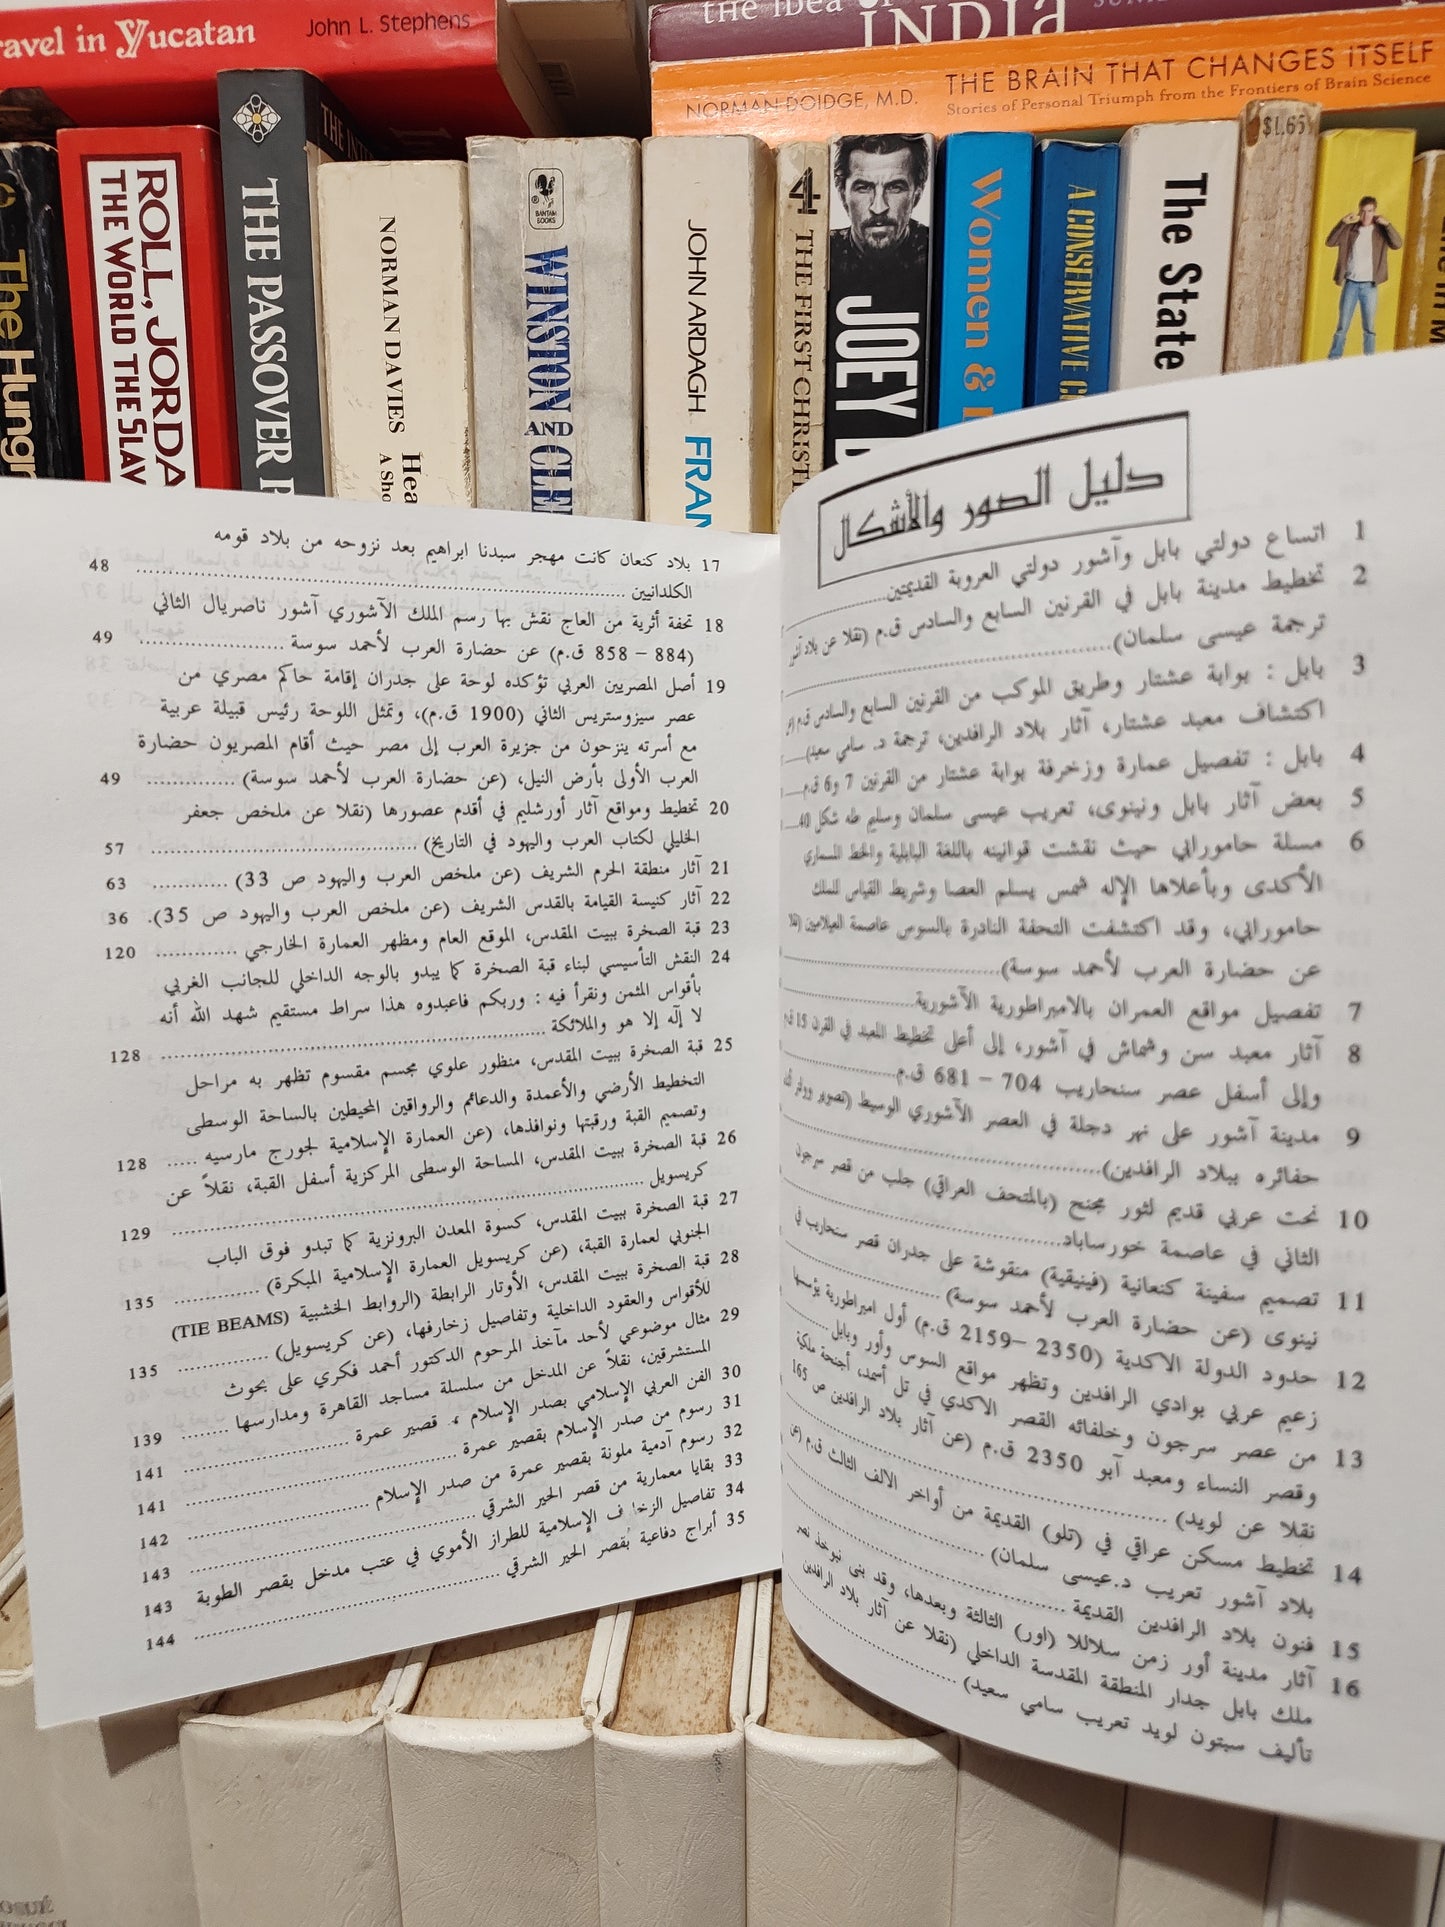 Travel in Yucatan
John L. Stephens
THE IDEA OF
INDIA
NORMAN DOIDGE, M.D.
THE BRAIN THAT CHANGES ITSELF
Stories of Personal Triumph from the Frontiers of Brain Science
The Hungr
ROLL, JORDA
THE WORLD THE SLAV
THE PASSOVER P
NORMAN DAVIES
Hea
A Sho
BANTAM
BOOKS
WINSTON
AND CLE
JOHN ARDAGH
FRAN
4
THE FIRST CHRIST
JOEY
Women &
A CONSERVATIVE
The State
$1.65
دليل الصور والأشكال
1 اتساع دولتي بابل وآشور دولتي العروبة القديمتين
2 تخطيط مدينة بابل في القرنين السابع والسادس ق.م (نقلا عن بلاد آشور
ترجمة عيسى سلمان)
3 بابل : بوابة عشتار وطريق الموكب من القرنين السابع والسادس ق.م
اكتشاف معبد عشتار، آثار بلاد الرافدين، ترجمة د. سامي سعيد)
4 بابل : تفصيل عمارة وزخرفة بوابة عشتار من القرنين 7 و6 ق.م
5 بعض آثار بابل ونينوى، تعريب عيسى سلمان وسليم طه شكل 40
6 مسلة حامورابي حيث نقشت قوانينه باللغة البابلية والخط المسماري
الأكدى وبأعلاها الإله شمس يسلم العصا وشريط القياس للملك
حامورابي، وقد اكتشفت التحفة النادرة بالسوس عاصمة العيلاميين (نقلا
عن حضارة العرب لأحمد سوسة)
7 تفصيل مواقع العمران بالامبراطورية الآشورية
8 آثار معبد سن وشماش في آشور، إلى أعلى تخطيط المعبد في القرن 15 ق.م
وإلى أسفل عصر سنحاريب 704 – 681 ق.م
9 مدينة آشور على نهر دجلة في العصر الآشوري الوسيط (تصوير وولتر
حفائره ببلاد الرافدين)
10 نحت عربي قديم لثور مجنح (بالمتحف العراقي) جلب من قصر سرجون
الثاني في عاصمة خورساباد
11 تصميم سفينة كنعانية (فينيقية) منقوشة على جدران قصر سنحاريب في
نينوى (عن حضارة العرب لأحمد سوسة)
12 حدود الدولة الاكدية (2350 –2159 ق.م) أول امبراطورية يؤسسها
زعيم عربي بوادي الرافدين وتظهر مواقع السوس وأور وبابل
13 من عصر سرجون وخلفائه القصر الاكدي في تل أسمد، أجنحة ملكية
وقصر النساء ومعبد آبو 2350 ق.م (عن آثار بلاد الرافدين ص 165
نقلا عن لويد)
14 تخطيط مسكن عراقي في (تلو) القديمة من أواخر الالف الثالث ق.م (عن
بلاد آشور تعريب د.عيسى سلمان)
15 فنون بلاد الرافدين القديمة
16 آثار مدينة أور زمن سلاللا (اور) الثالثة وبعدها، وقد بنى نبوخذ نصر
ملك بابل جدار المنطقة المقدسة الداخلي (نقلا عن آثار بلاد الرافدين
تأليف سبتون لويد تعريب سامي سعيد)
17 بلاد كنعان كانت مهجر سبدنا ابراهيم بعد نزوحه من بلاد قومه
الكلدانيين 48
18 تحفة أثرية من العاج نقش بها رسم الملك الآشوري آشور ناصريال الثاني
(884 – 858 ق.م) عن حضارة العرب لأحمد سوسة 49
19 أصل المصريين العربي تؤكده لوحة على جدران إقامة حاكم مصري من
عصر سيزوستريس الثاني (1900 ق.م)، وتمثل اللوحة رئيس قبيلة عربية
مع أسرته ينزحون من جزيرة العرب إلى مصر حيث أقام المصريون حضارة
العرب الأولى بأرض النيل، (عن حضارة العرب لأحمد سوسة) 49
20 تخطيط ومواقع آثار أورشليم في أقدم عصورها (نقلا عن ملخص جعفر
الخليلي لكتاب العرب واليهود في التاريخ) 57
21 آثار منطقة الحرم الشريف (عن ملخص العرب واليهود ص 33) 63
22 آثار كنيسة القيامة بالقدس الشريف (عن ملخص العرب واليهود ص 35). 36
23 قبة الصخرة ببيت المقدس، الموقع العام ومظهر العمارة الخارجي 120
24 النقش التأسيسي لبناء قبة الصخرة كما يبدو بالوجه الداخلي للجانب الغربي
بأقواس المثمن ونقرأ فيه : وربكم فاعبدوه هذا سراط مستقيم شهد الله أنه
لا إله إلا هو والملائكة 128
25 قبة الصخرة ببيت المقدس، منظور علوي مجسم مقسوم تظهر به مراحل
التخطيط الأرضي والأعمدة والدعائم والرواقين المحيطين بالساحة الوسطى
وتصميم القبة ورقبتها ونوافذها، (عن العمارة الإسلامية لجورج مارسيه 128
26 قبة الصخرة ببيت المقدس، المساحة الوسطى المركزية أسفل القبة، نقلاً عن
كريسويل 129
27 قبة الصخرة ببيت المقدس، كسوة المعدن البرونزية كما تبدو فوق الباب
الجنوبي لعمارة القبة، (عن كريسويل العمارة الإسلامية المبكرة) 135
28 قبة الصخرة ببيت المقدس، الأوتار الرابطة (الروابط الخشبية (TIE BEAMS)
للأقواس والعقود الداخلية وتفاصيل زخارفها، (عن كريسويل) 135
29 مثال موضوعي لأحد مآخذ المرحوم الدكتور أحمد فكري على بحوث
المستشرقين، نقلاً عن المدخل من سلسلة مساجد القاهرة ومدارسها 139
30 الفن العربي الإسلامي بصدر الإسلام ، قصير عمرة 141
31 رسوم من صدر الإسلام بقصير عمرة 141
32 رسوم آدمية ملونة بقصير عمرة من صدر الإسلام 142
33 بقايا معمارية من قصر الحير الشرقي 143
34 تفاصيل الزخا ف الإسلامية للطراز الأموي في عتب مدخل بقصر الطوبة 143
35 أبراج دفاعية بقصر الحير الشرقي 144